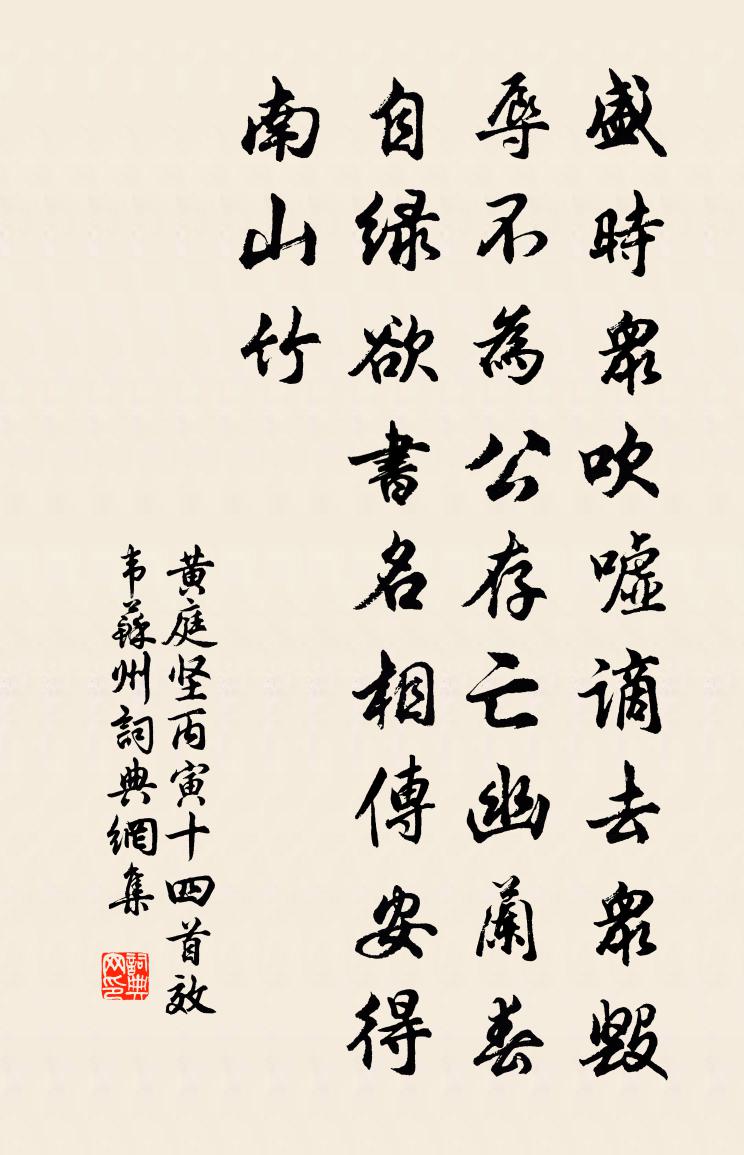 盛時眾吹噓謫去眾毀
辱不為公存亡幽蘭春
自緑欲書名相傳安得
南山竹
黄庭坚丙寅十四首效
韦蘇州詞典網集
詞典网印